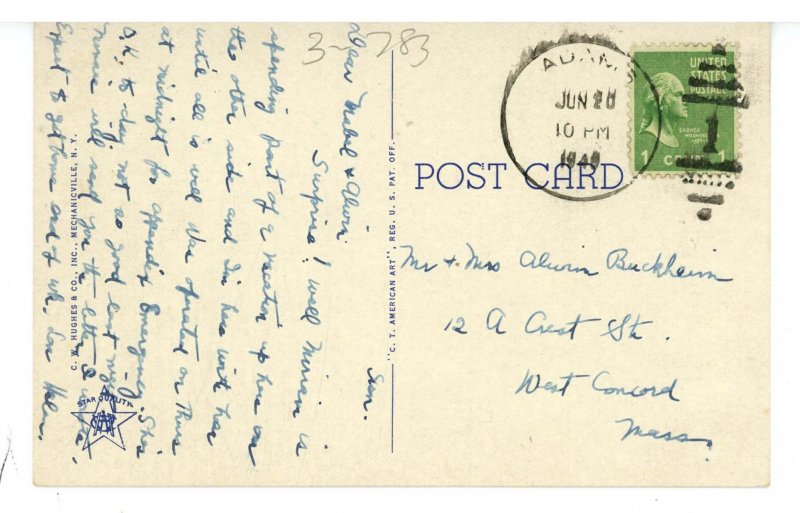 3-5283
Sun.
Dear Mabel & Alvin.
Surprise! well Miriam is
spending part of a vacation up here on
the other side and I'm here with her
until all is well was operated on Thurs
at midnight for appendix Emergency. She's
O.K. to-day, not so good last night.
will send you the letter I wrote.
Expect to get home end of wk. Love Helen.
C. W. HUGHES & CO., INC., MECHANICVILLE, N. Y.
STAR QUALITY
"C. T. AMERICAN ART", REG. U. S. PAT. OFF.
POST CARD
ADAMS
JUN 20
10 PM
1949
UNITED
STATES
POSTAGE
GEORGE
1 1
1
Mr + Mrs Alvin Buckheim
12 A Crest St.
West Concord
Mass.